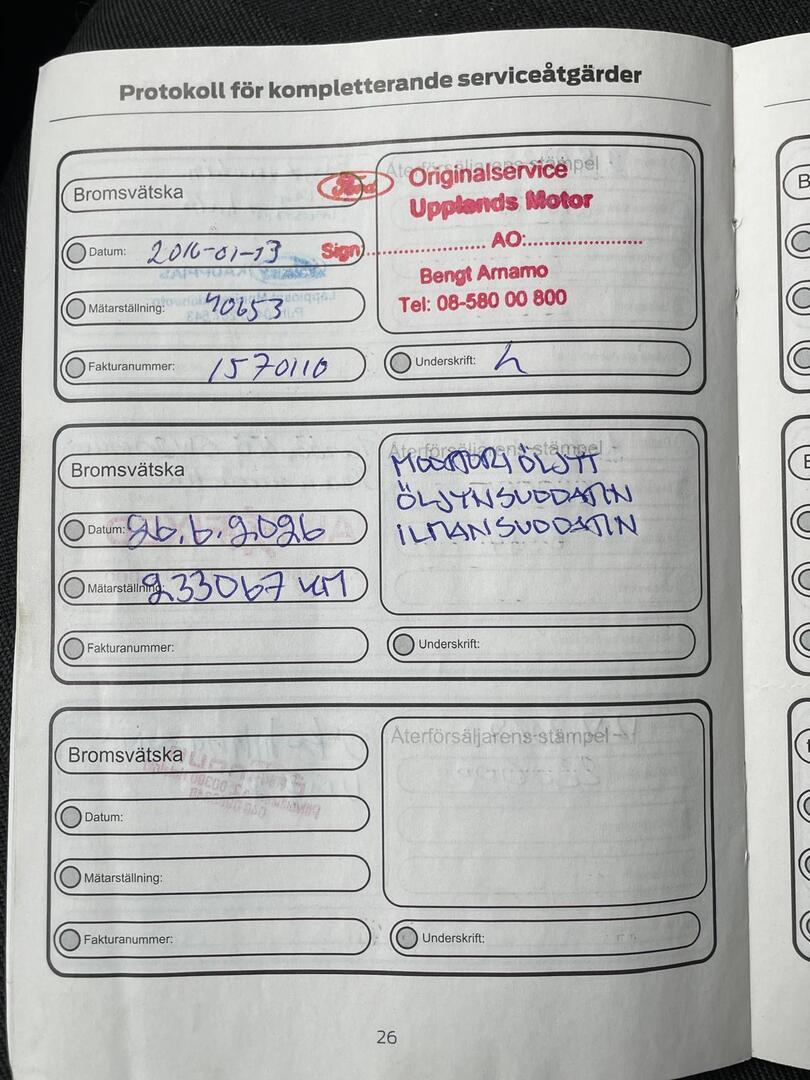 Protokoll för kompletterande serviceåtgärder
Bromsvätska
Ford
Datum: 2016-01-13
Mätarställning: 40653
Fakturanummer: 1570110
Originalservice
Upplands Motor
Sign AO:
Bengt Arnamo
Tel: 08-580 00 800
Underskrift:
Bromsvätska
Datum: 26.6.2026
Mätarställning: 233067 KM
Fakturanummer:
Återförsäljarens stämpel
MOOTTORIÖLJYT
ÖLJYNSUODATIN
ILMANSUODATIN
Underskrift:
Bromsvätska
Datum:
Mätarställning:
Fakturanummer:
Återförsäljarens stämpel
Underskrift:
26